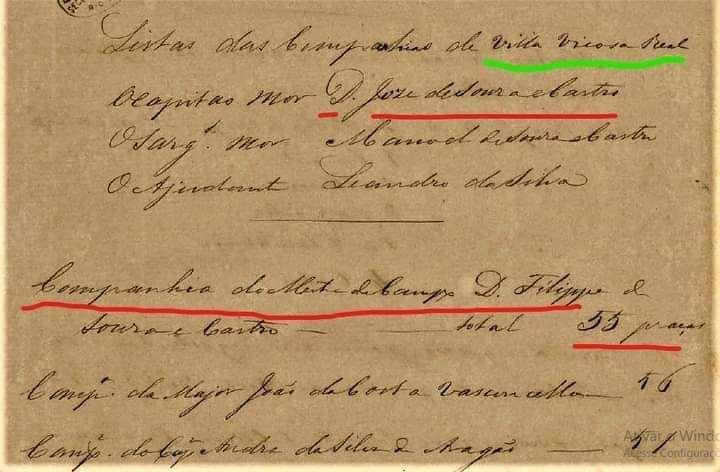 Listas das Companhias de Villa Vicosa Real
O Capitao Mor D. Joze de Soura e Castro
O Sarg.t Mor Manoel de Soura e Castro
O Ajudante Leandro da Silva
Companhia do Mestre de Campo D. Filippe de
Soura e Castro — total 55 praças
Comp.ª da Major João da Costa Vasconcellos — 56
Comp.ª do Cap Andre da Silva de Aragão — 51
Ativar o Windo
Acesse Configuraçõ